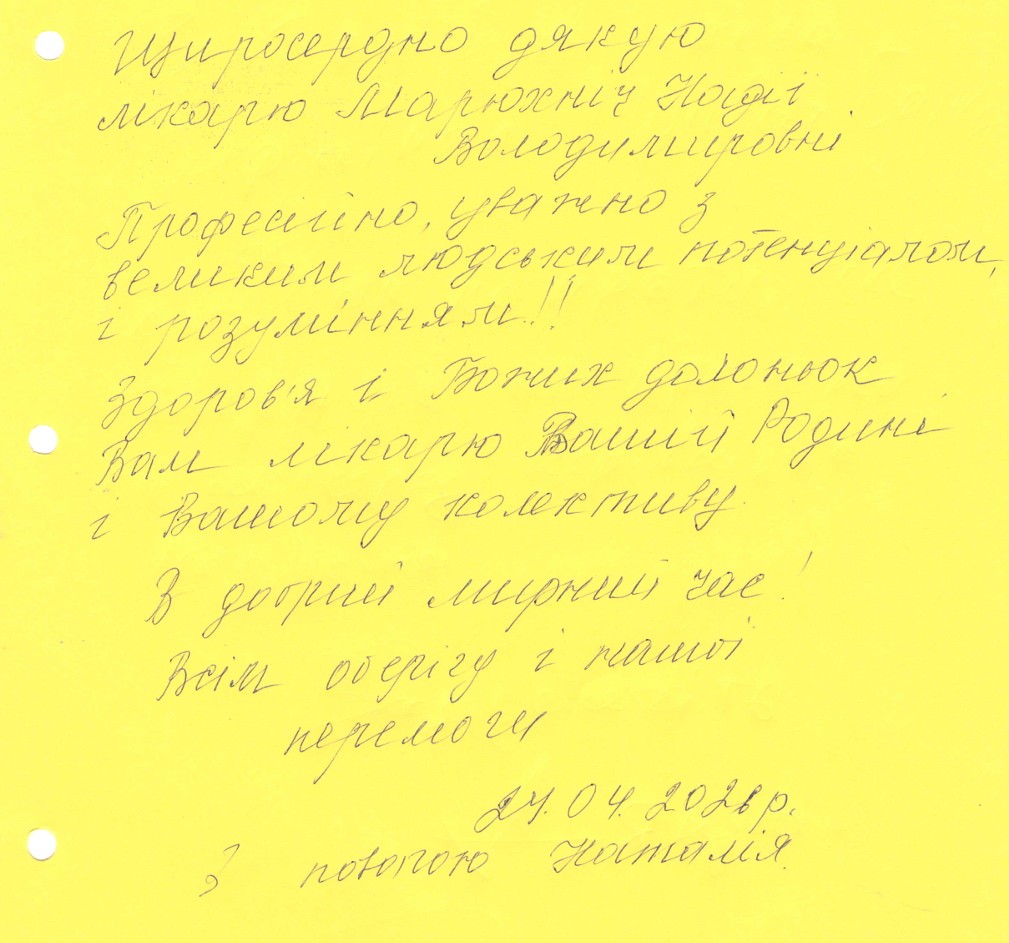 Щиросердно дякую
лікарю Марюхніч Надії
Володимировні
Професійно, уважно з
великим людським потенціалом,
і розумінням!!
Здоров'я і Божих долоньок
Вам лікарю Вашій Родині
і Вашому колективу.
В добрий мирний час!
Всім оберігу і нашої
перемоги
24.04.2026р.
З повагою Наталія.